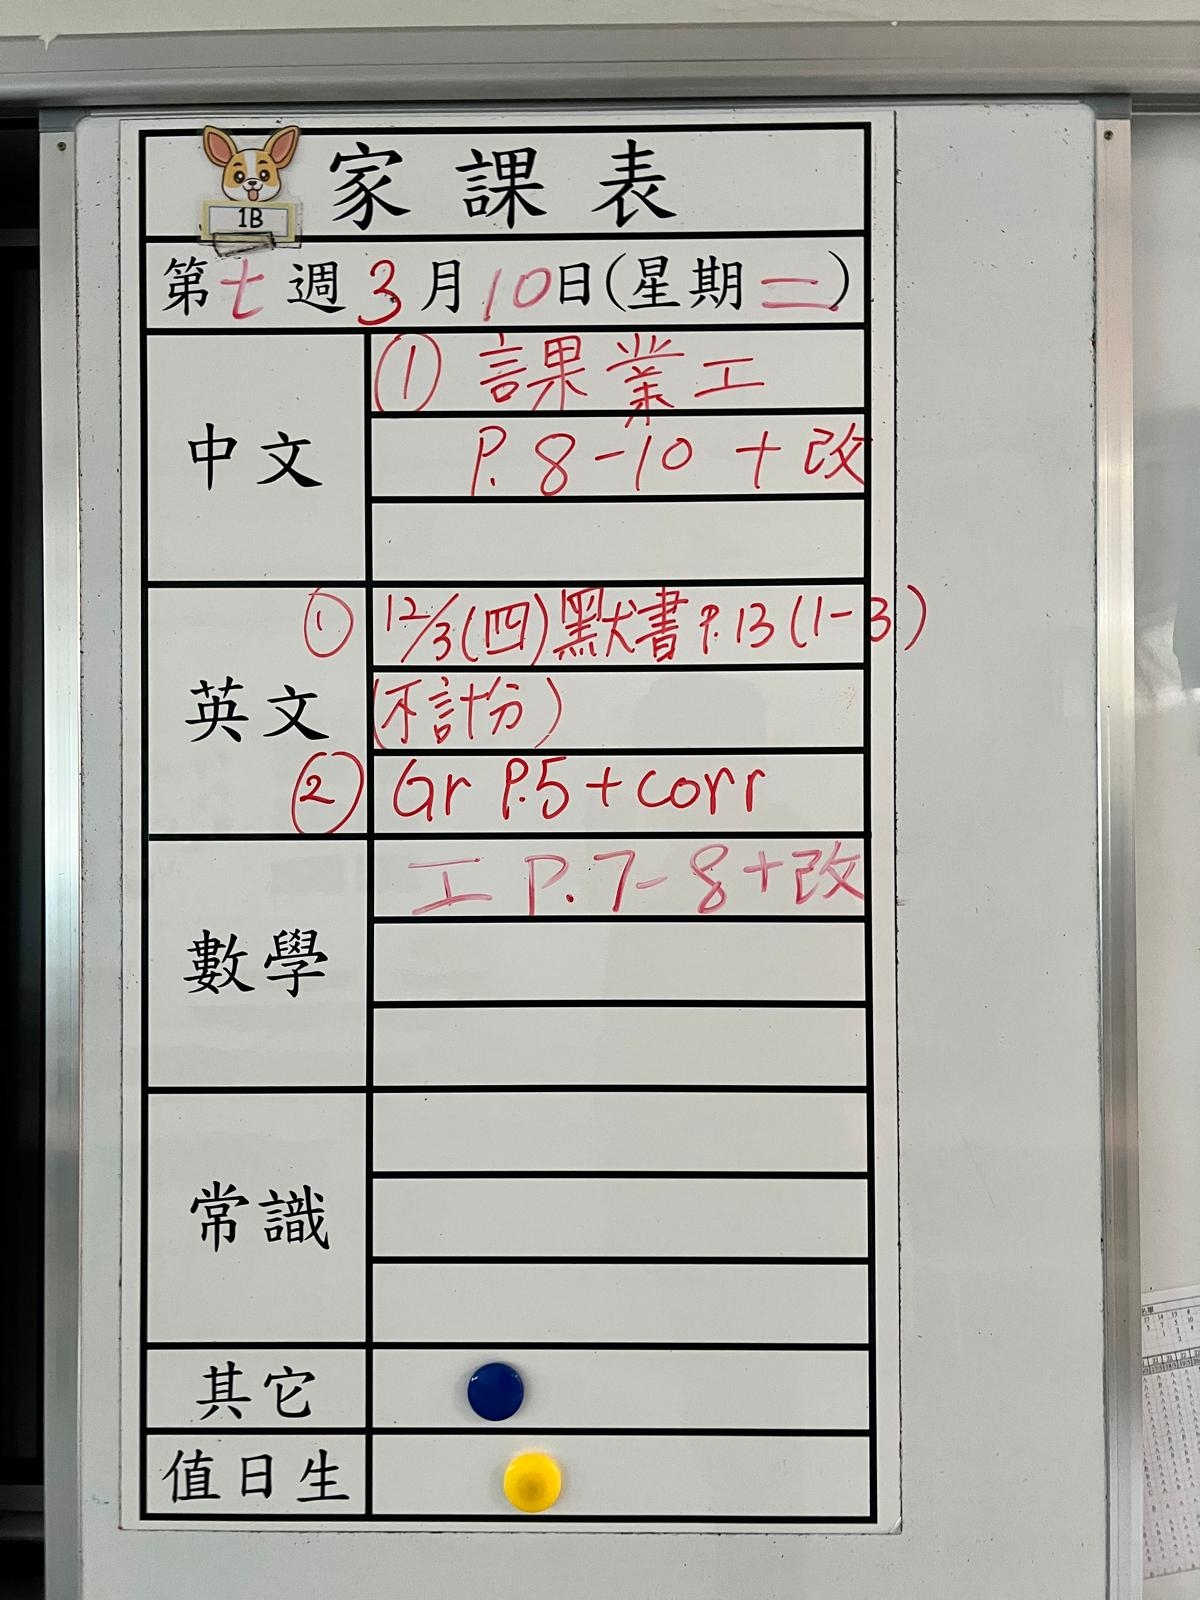 家課表
1B
第七週3月10日(星期二)
中文
① 課業工
P.8-10 + 改
英文
① 12/3(四)默書P.13(1-3)
(不計分)
② Gr P.5+corr
數學
工 P.7-8+改
常識
其它
值日生